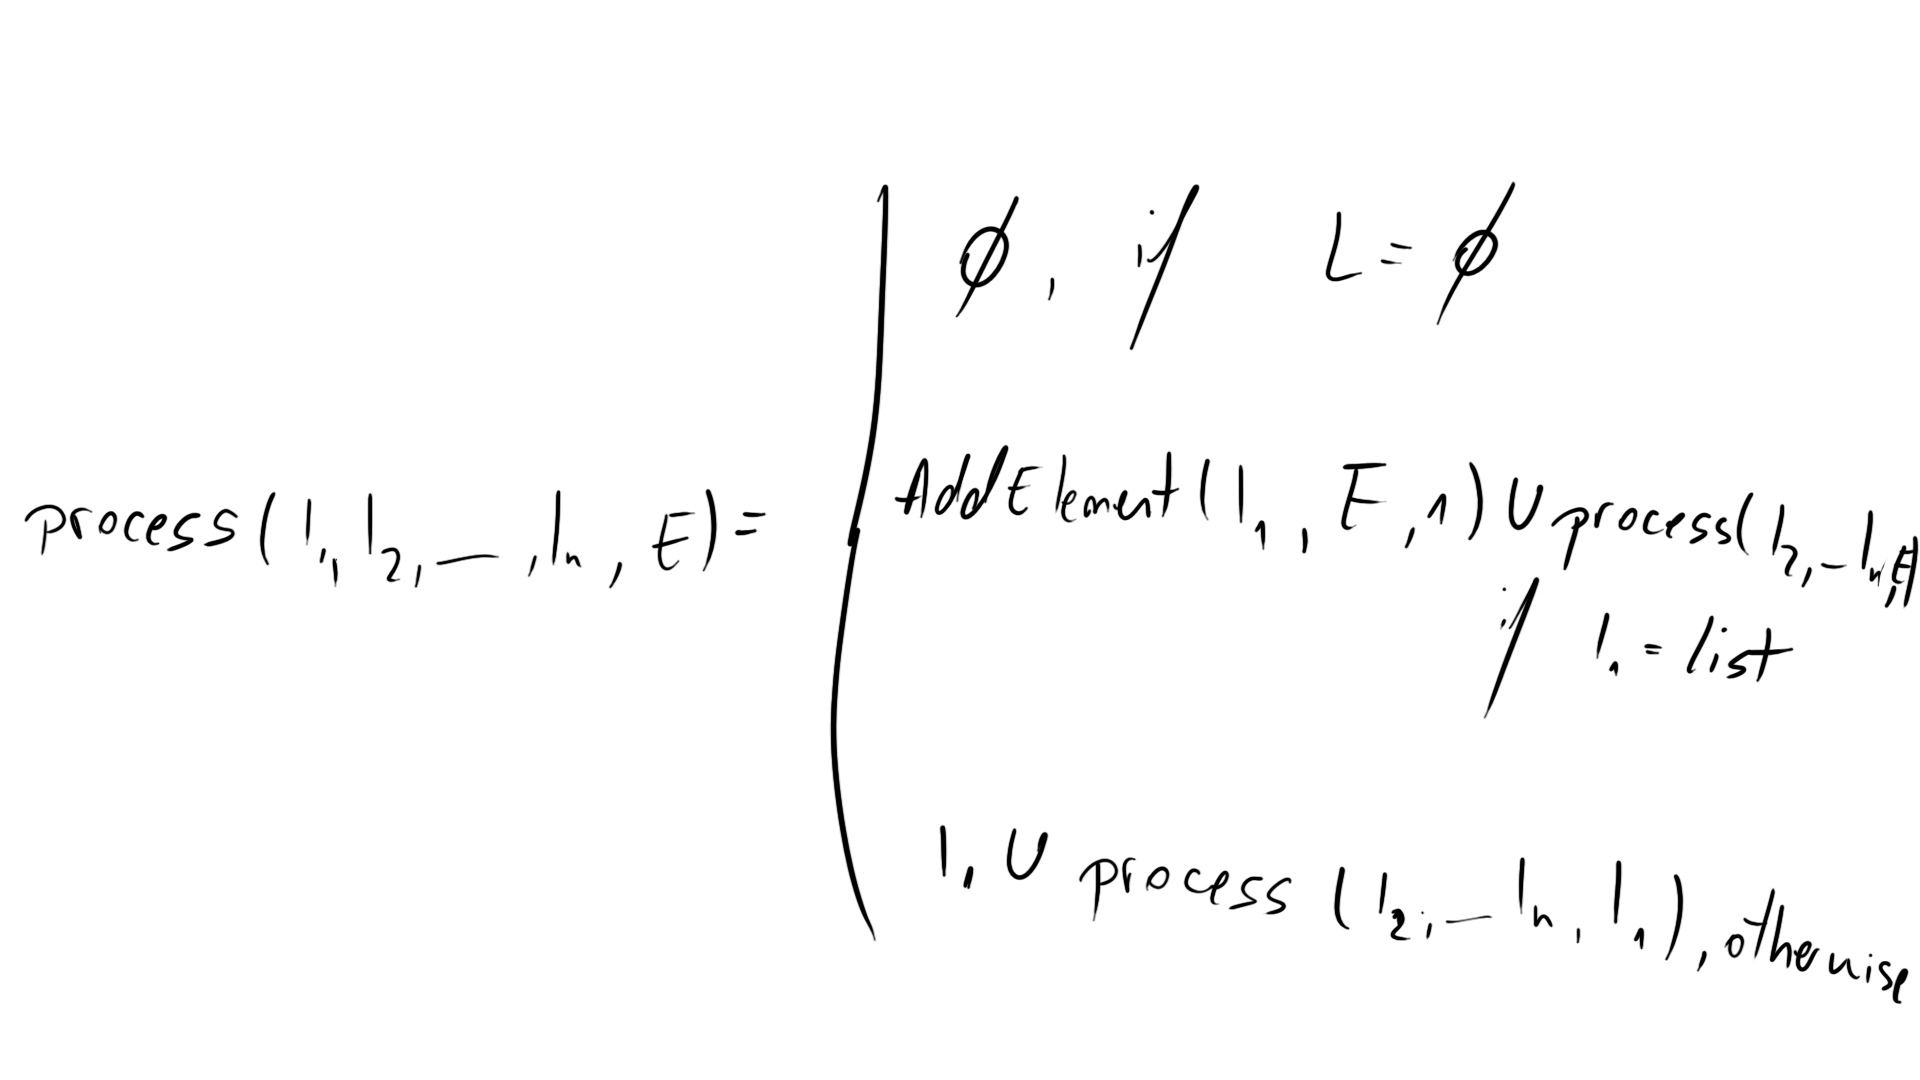 ∅, if L = ∅
process(l₁, l₂, — , lₙ, E) =
AddElement(l₁, E, 1) ∪ process(l₂, — lₙ, E)
if l₁ = list
l₁ ∪ process (l₂, — lₙ, l₁), otherwise